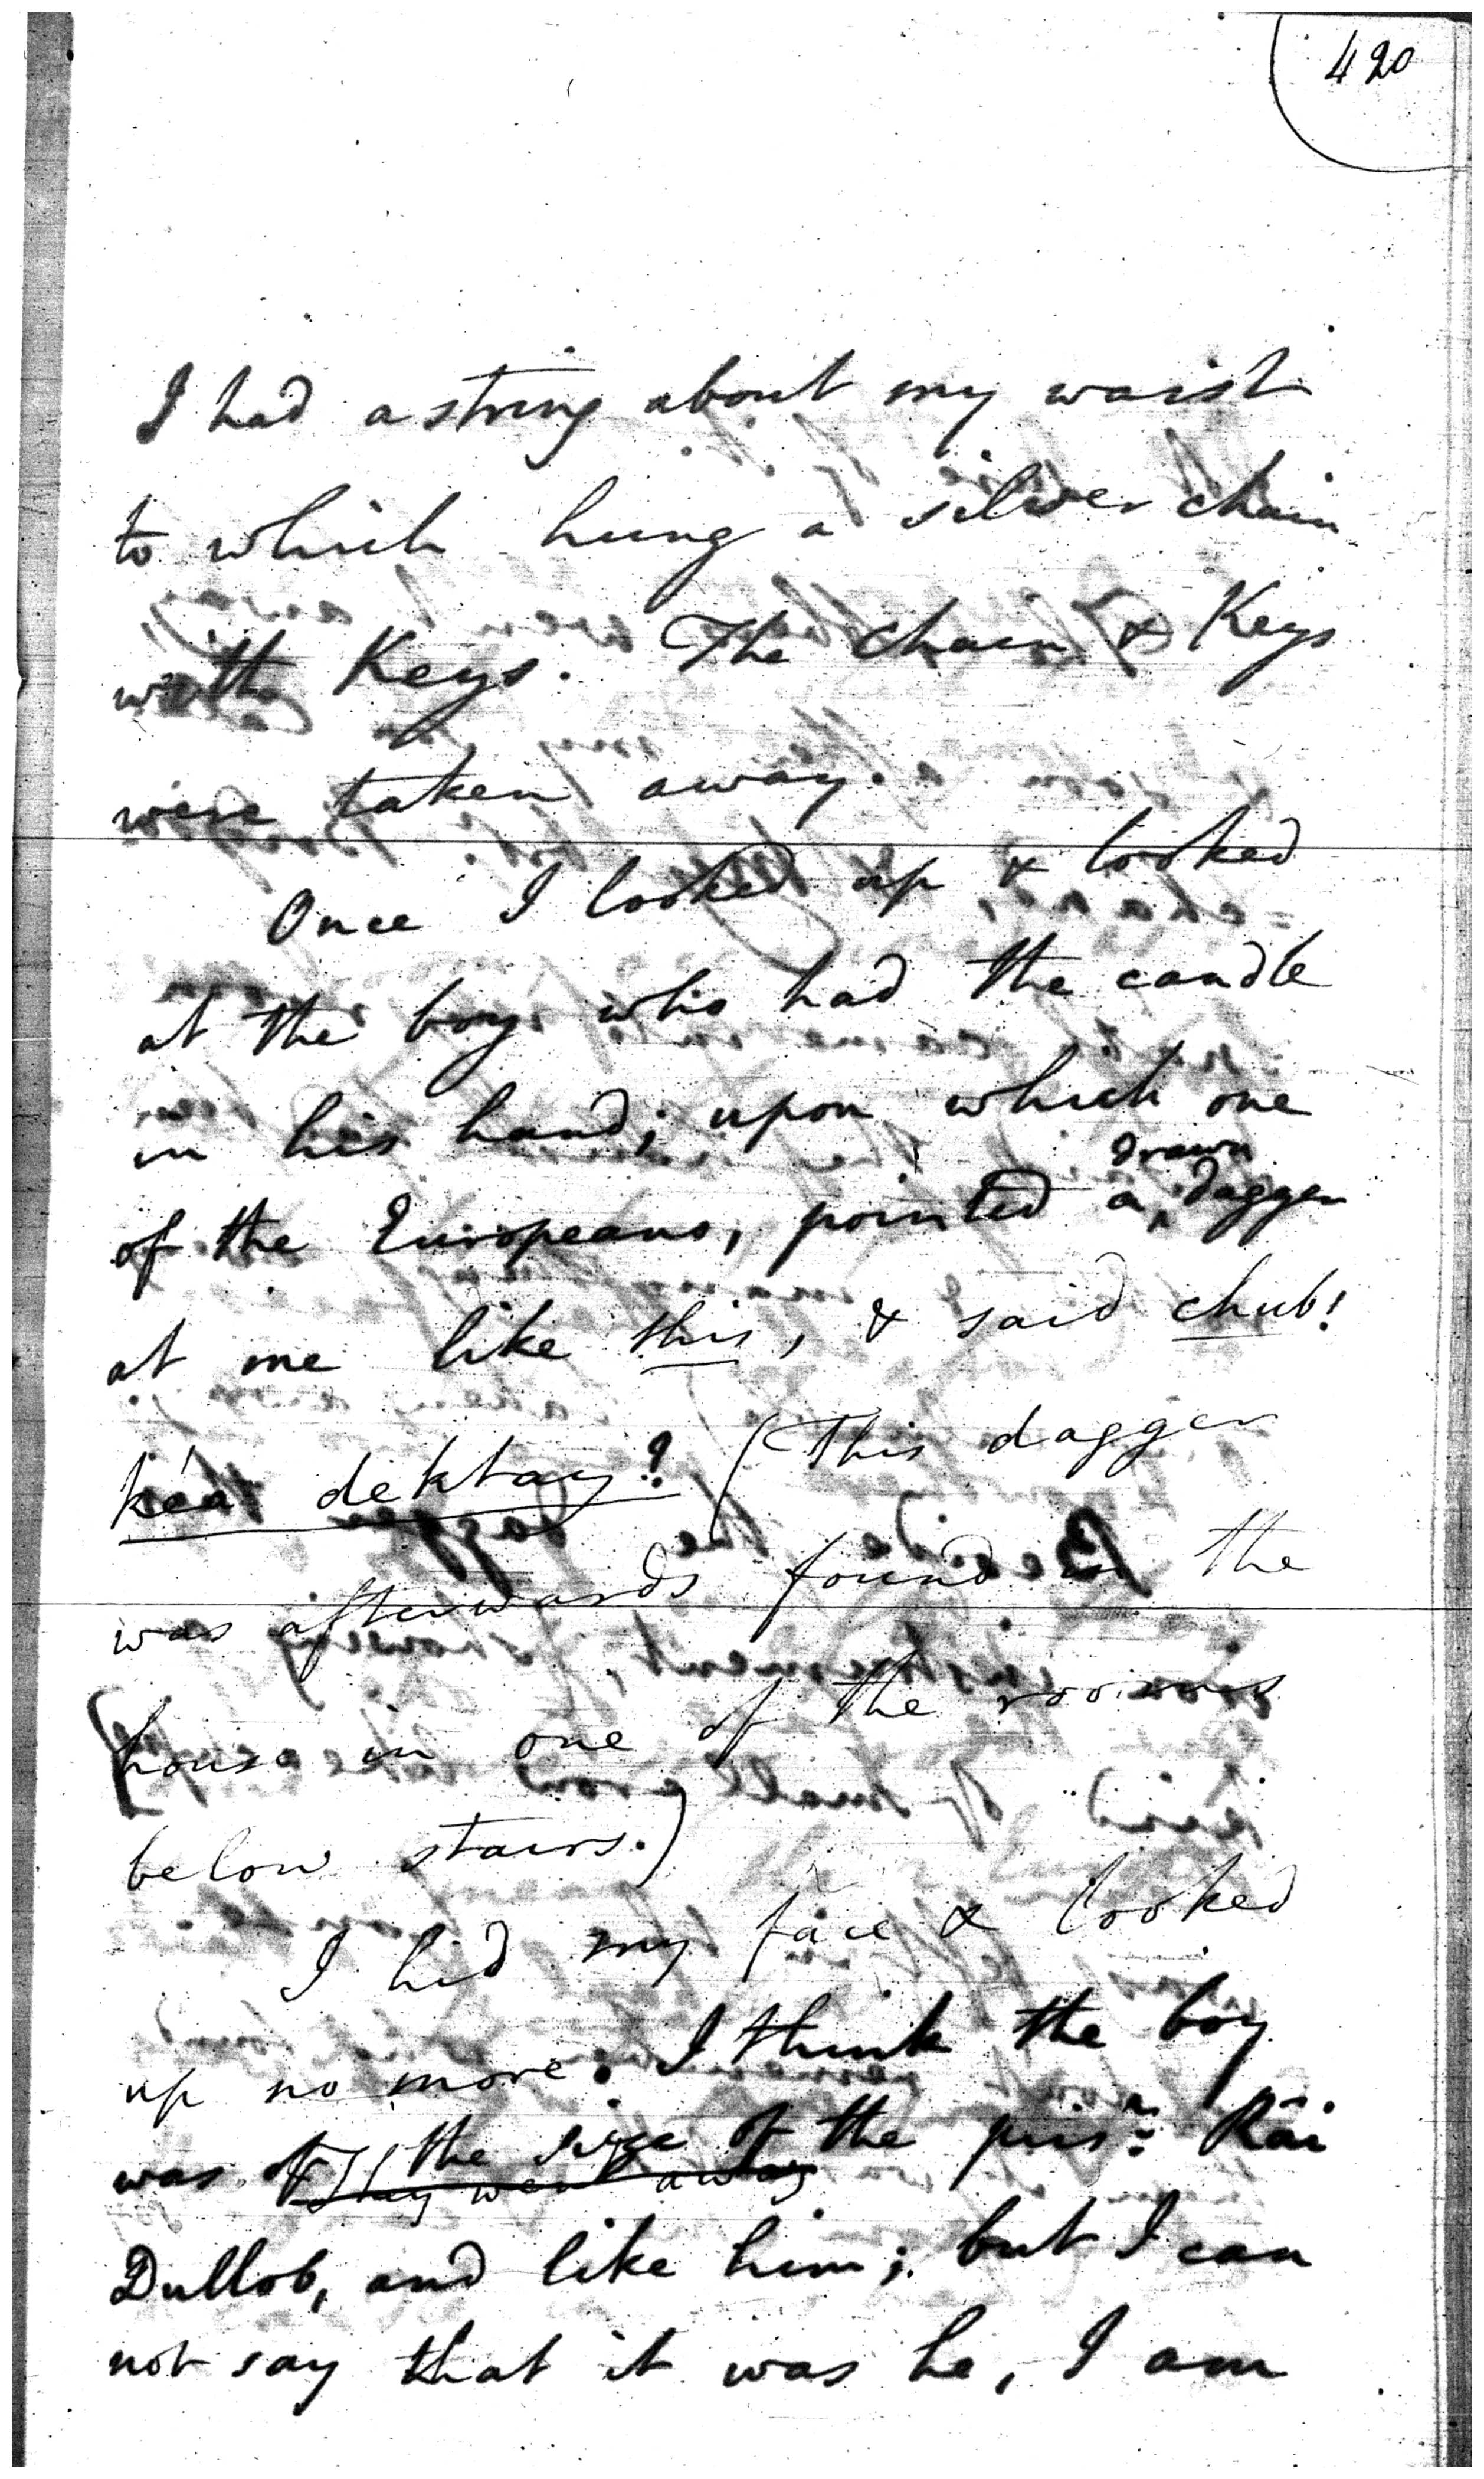 420
I had a string about my waist
to which hung a silver chain
with Keys. The chain & Keys
were taken away.
Once I looked up & looked
at the boy who had the candle
in his hand; upon which one
drawn
of the Europeans, pointed a ‸ dagger
at me like this, & said chub!
kéa dektay? (This dagger
was afterwards found in the
house in one of the rooms
below stairs.)
I hid my face & looked
up no more. I think the boy
was of the size of the pris:r Rái
They went away
Dullob, and like him; but I can
not say that it was he, I am